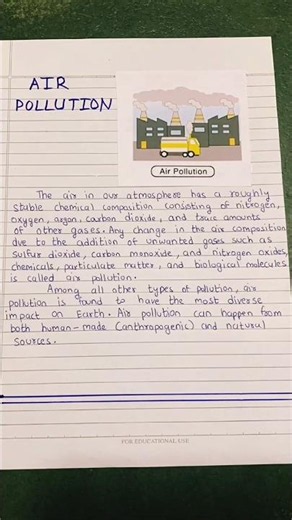 AIR
POLLUTION
Air Pollution
The air in our atmosphere has a roughly
stable chemical composition consisting of nitrogen,
oxygen, argon, carbon dioxide, and trace amounts
of other gases. Any change in the air composition
due to the addition of unwanted gases such as
sulfur dioxide, carbon monoxide, and nitrogen oxides,
chemicals, particulate matter, and biological molecules
is called air pollution.
Among all other types of pollution, air
pollution is found to have the most diverse
impact on Earth. Air pollution can happen from
both human-made (anthropogenic) and natural
sources.
FOR EDUCATIONAL USE